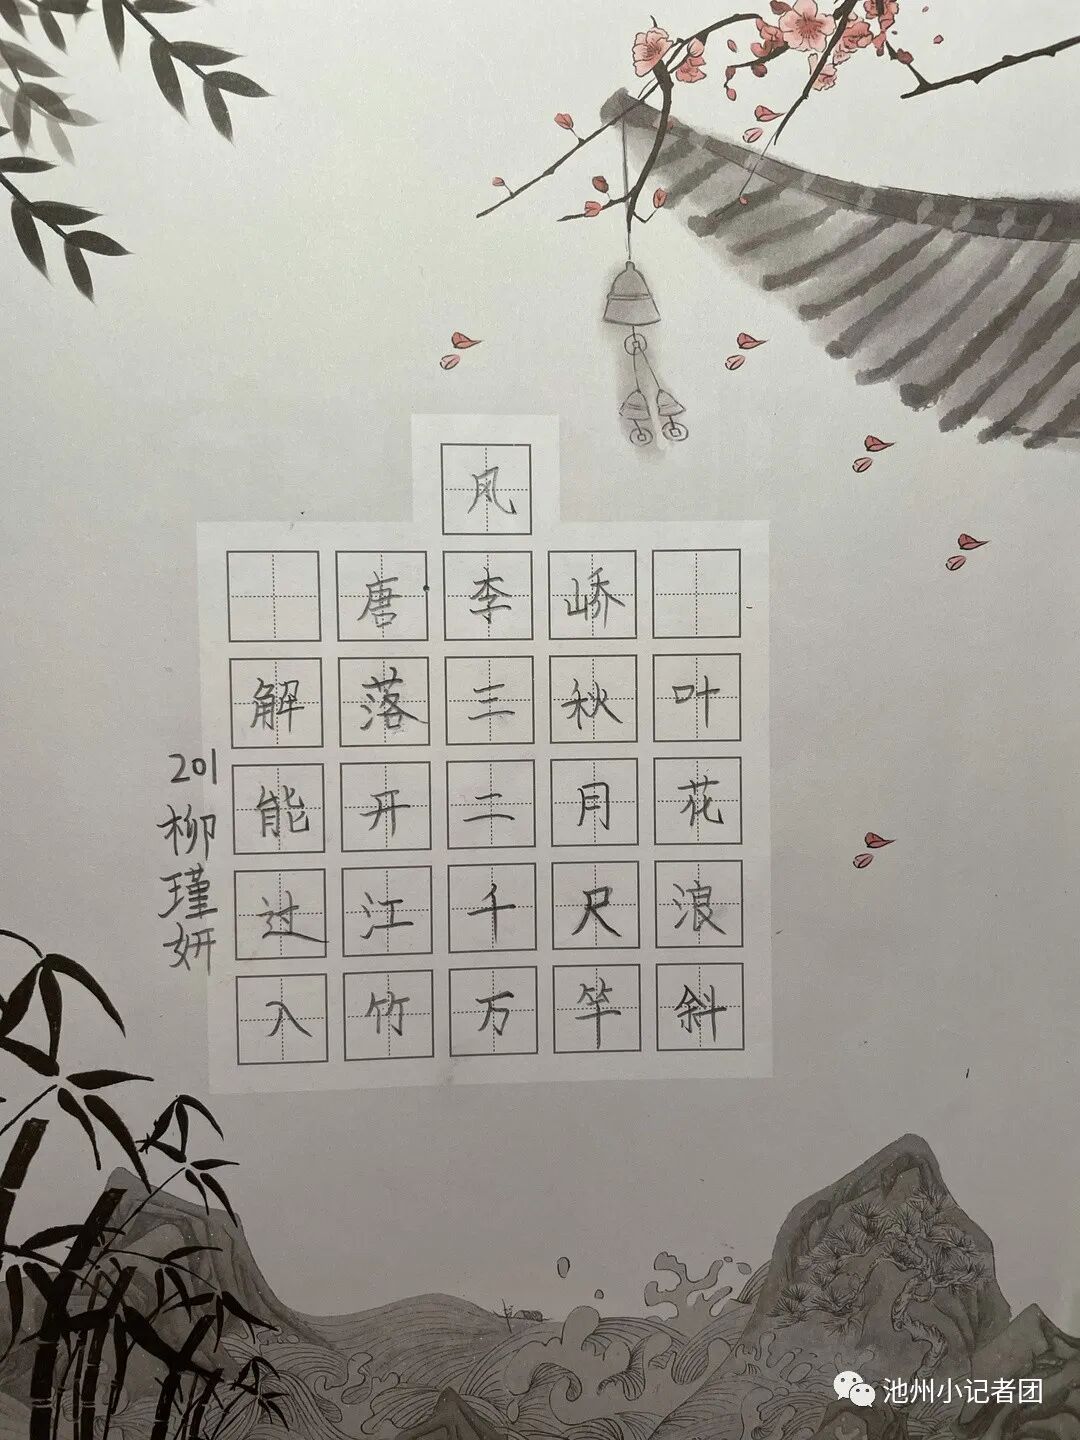 风
唐李峤
解落三秋叶
能开二月花
过江千尺浪
入竹万竿斜
201
柳瑾妍
池州小记者团